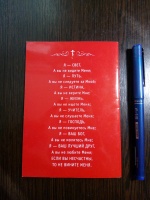 Я — СВЕТ,
А вы не видите Меня;
Я — ПУТЬ,
А вы не следуете за Мной;
Я — ИСТИНА,
А вы не верите Мне;
Я — ЖИЗНЬ,
А вы не ищете Меня;
Я — УЧИТЕЛЬ,
А вы не слушаете Меня;
Я — ГОСПОДЬ,
А вы не повинуетесь Мне;
Я — ВАШ БОГ,
А вы не молитесь Мне;
Я — ВАШ ЛУЧШИЙ ДРУГ,
А вы не любите Меня;
ЕСЛИ ВЫ НЕСЧАСТНЫ,
ТО НЕ ВИНИТЕ МЕНЯ.